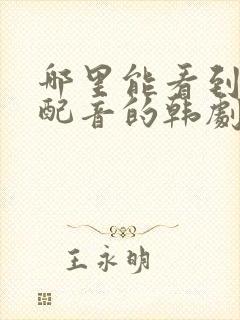 那里能看到
配音的韩劇
王永明